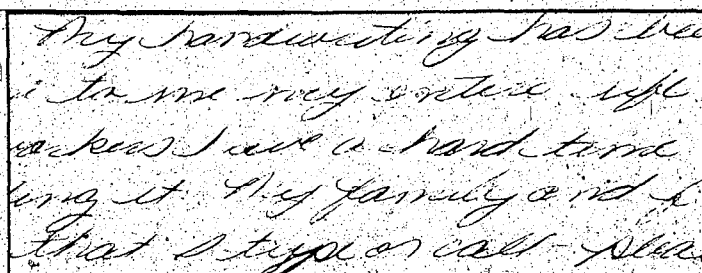 My handwriting has bee
to me my entire life
workers have a hard time
ing it. My family and f
that I type or call - plea